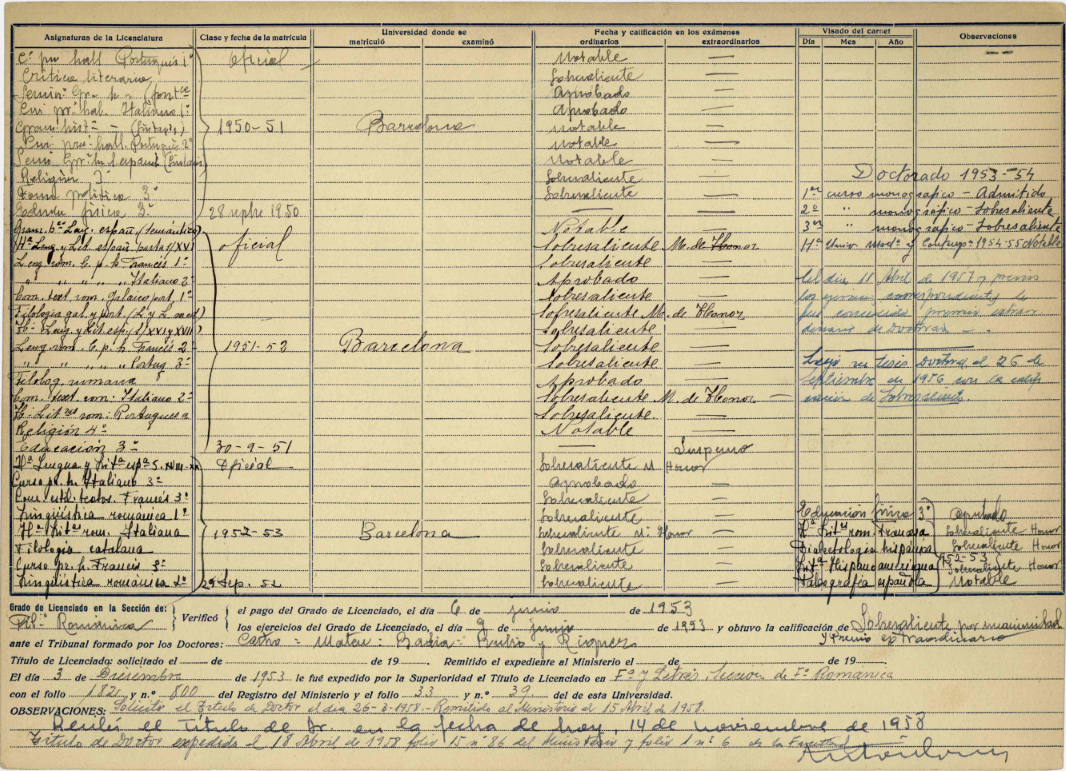 Asignaturas de la Licenciatura Clase y fecha de la matrícula Universidad donde se matriculó examinó Fecha y calificación en los exámenes ordinarios extraordinarios Visado del carnet Día Mes Año Observaciones
Portugués 1º Oficial Notable —
Crítica literaria Sobresaliente —
Aprobado —
Italiano 1º Aprobado —
1950-51 Barcelona Notable —
Portugués 2º Notable —
Notable —
Religión Sobresaliente — Doctorado 1953-54
política 3º Sobresaliente — 1er curso monográfico - Admitido
física 3º 28 1950 — 2º " monográfico - Sobresaliente
Gram. hca Leng. españ. (semántica) Notable — 3er " monográfico - Sobresaliente
Hª Leng. y Lit. españ. oficial Sobresaliente M. de Honor Hª 1954-55 Notable
Leng. rom. C. p. h. Francés 1º Sobresaliente —
" " " " " Italiano 2º Aprobado — El día 11 Abril de 1957 y previo
Com. text. rom. galaico port. 1º Sobresaliente — los ejercicios correspondientes le
Filología gal. y port. (L. y L. med.) Sobresaliente M. de Honor fué concedido premio extraor-
Hª Leng. y Lit. esp. (s/XVI y XVII) Sobresaliente — dinario de Doctorado —.
Leng. rom. C. p. h. Francés 2º 1951-52 Barcelona Sobresaliente —
" " " " " Portug. 3º Sobresaliente — Tesis Doctoral el 26 de
Filolog. rumana Aprobado — Septiembre de 1956 con la califi-
Com. text. rom: Italiano 2º Sobresaliente M. de Honor cación de Sobresaliente.
Hª Litas rom: Portuguesa Sobresaliente —
Religión 4º Notable —
Educación 3º 30-9-51 — Suspenso
Hª Lengua y Litª espª S. XVIII-XX Oficial Sobresaliente M. Honor
Curso p. h. Italiano 3º Aprobado —
Francés 3º Sobresaliente —
Lingüística románica 1º Sobresaliente — Educación física 3º aprobado
Hª Litª rom. Italiana 1952-53 Barcelona Sobresaliente M. Honor Hª Litª rom. francesa Sobresaliente Honor
Filología catalana Sobresaliente — Dialectología hispánica Sobresaliente Honor
Curso p. h. Francés 3º Sobresaliente — Litª Hispanoamericana 952-53 Sobresaliente Honor
Lingüística románica 2º 29 Sep. 52 Sobresaliente — Paleografía española Notable
Grado de Licenciado en la Sección de: Filª Románica Verificó el pago del Grado de Licenciado, el día 6 de junio de 1953
los ejercicios del Grado de Licenciado, el día 9 de junio de 1953 y obtuvo la calificación de Sobresaliente por unanimidad
y Premio extraordinario
ante el Tribunal formado por los Doctores: Castro - Mateu - Badía - Rubió y Riquer
Título de Licenciado: solicitado el — de — de 19 —. Remitido el expediente al Ministerio el — de — de 19 —.
El día 3 de Diciembre de 1953 le fué expedido por la Superioridad el Título de Licenciado en Fª y Letras, Sección de Fª Románica
con el folio 182 y n.º 800 del Registro del Ministerio y el folio 33 y n.º 39 del de esta Universidad.
OBSERVACIONES: Solicitó el Título de Doctor el día 26-3-1958 - Remitido al Ministerio el 15 Abril de 1958.
Recibí el Título de Dr. en la fecha de hoy, 14 de noviembre de 1958
Título de Doctor expedido el 18 Abril de 1958 folio 15 nº 86 del Ministerio y folio 1 nº 6 de la Facultad